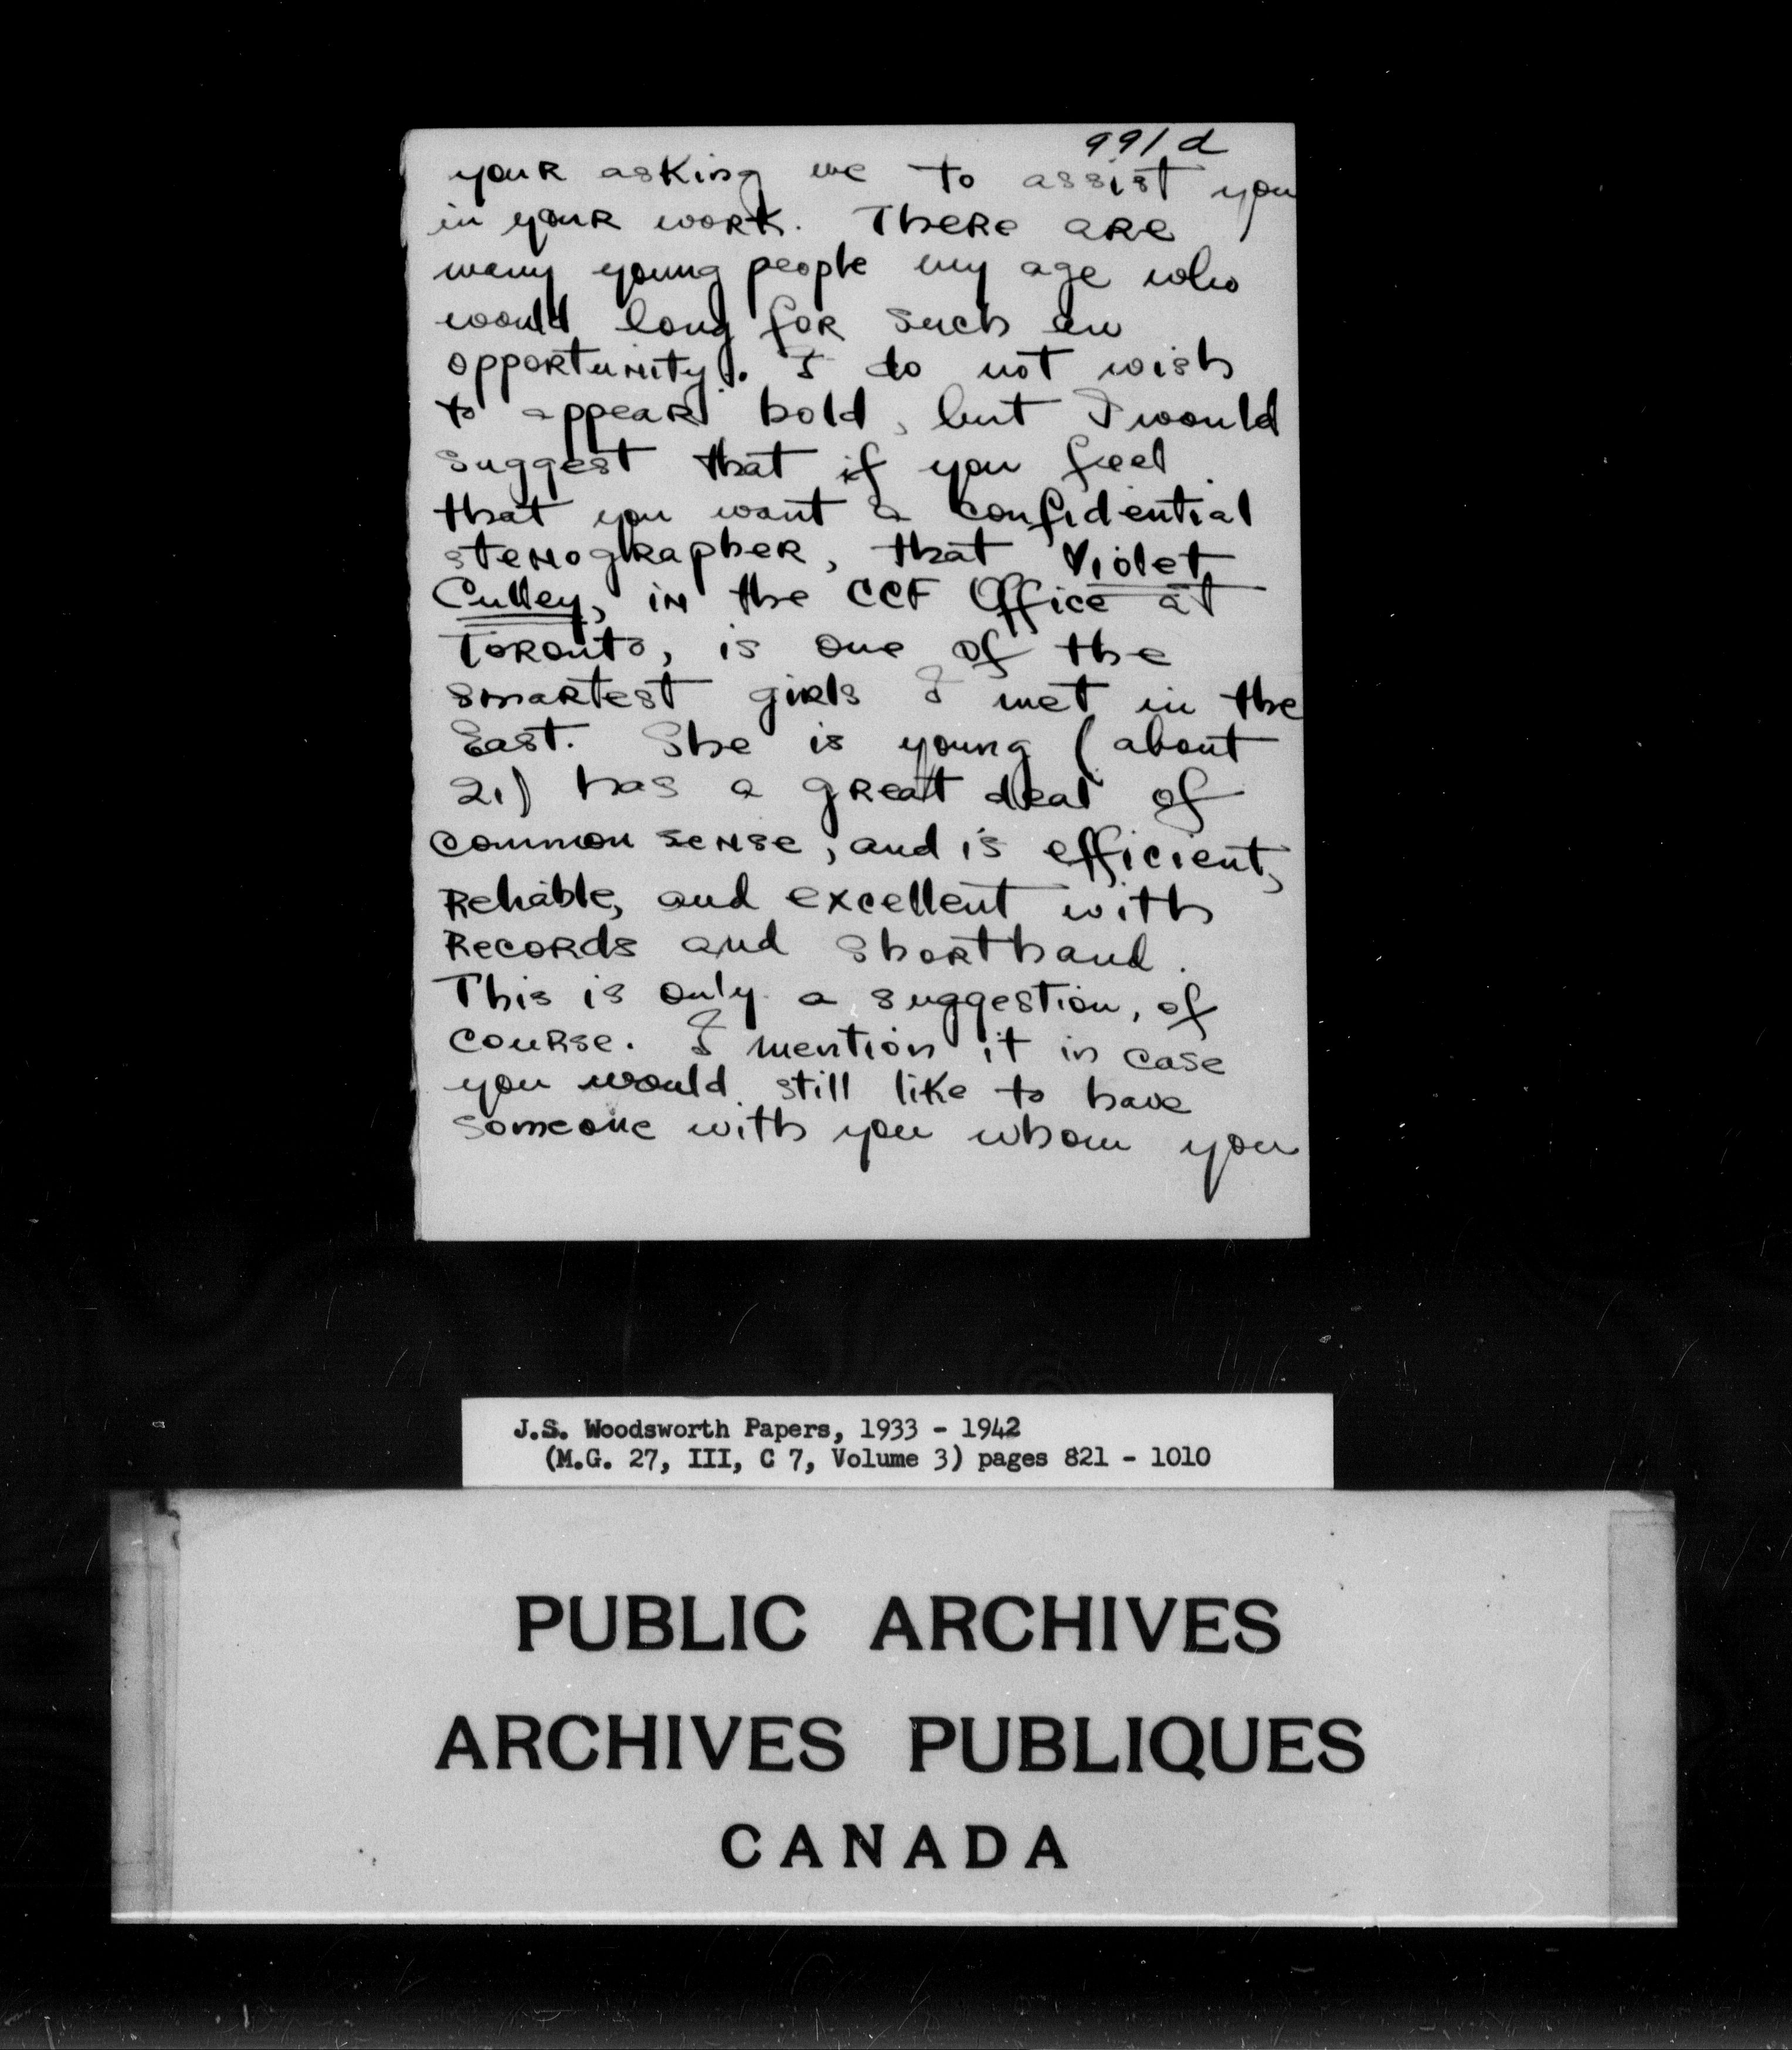 991 d
your asking me to assist you
in your work. There are
many young people my age who
would long for such an
opportunity. I do not wish
to appear bold, but I would
suggest that if you feel
that you want a confidential
stenographer, that Violet
Culley, in the CCF Office at
Toronto, is one of the
smartest girls I met in the
East. She is young (about
21) has a great deal of
common sense, and is efficient,
reliable, and excellent with
records and shorthand.
This is only a suggestion, of
course. I mention it in case
you would still like to have
someone with you whom you
J.S. Woodsworth Papers, 1933 - 1942
(M.G. 27, III, C 7, Volume 3) pages 821 - 1010
PUBLIC ARCHIVES
ARCHIVES PUBLIQUES
CANADA